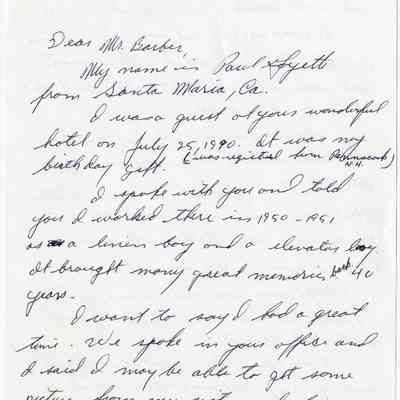 Dear Mr. Barber,
My name is Paul
from Santa Maria, Ca.
I was a guest at your wonderful
hotel on July 25, 1990. It was my
birthday gift. (I was registered from N.H.)
I spoke with you and told
you I worked there in 1950-1951
as a linen boy and a elevator boy
It brought many great memories back 40
years.
I want to say I had a great
time. We spoke in your office and
I said I may be able to get some
picture from my